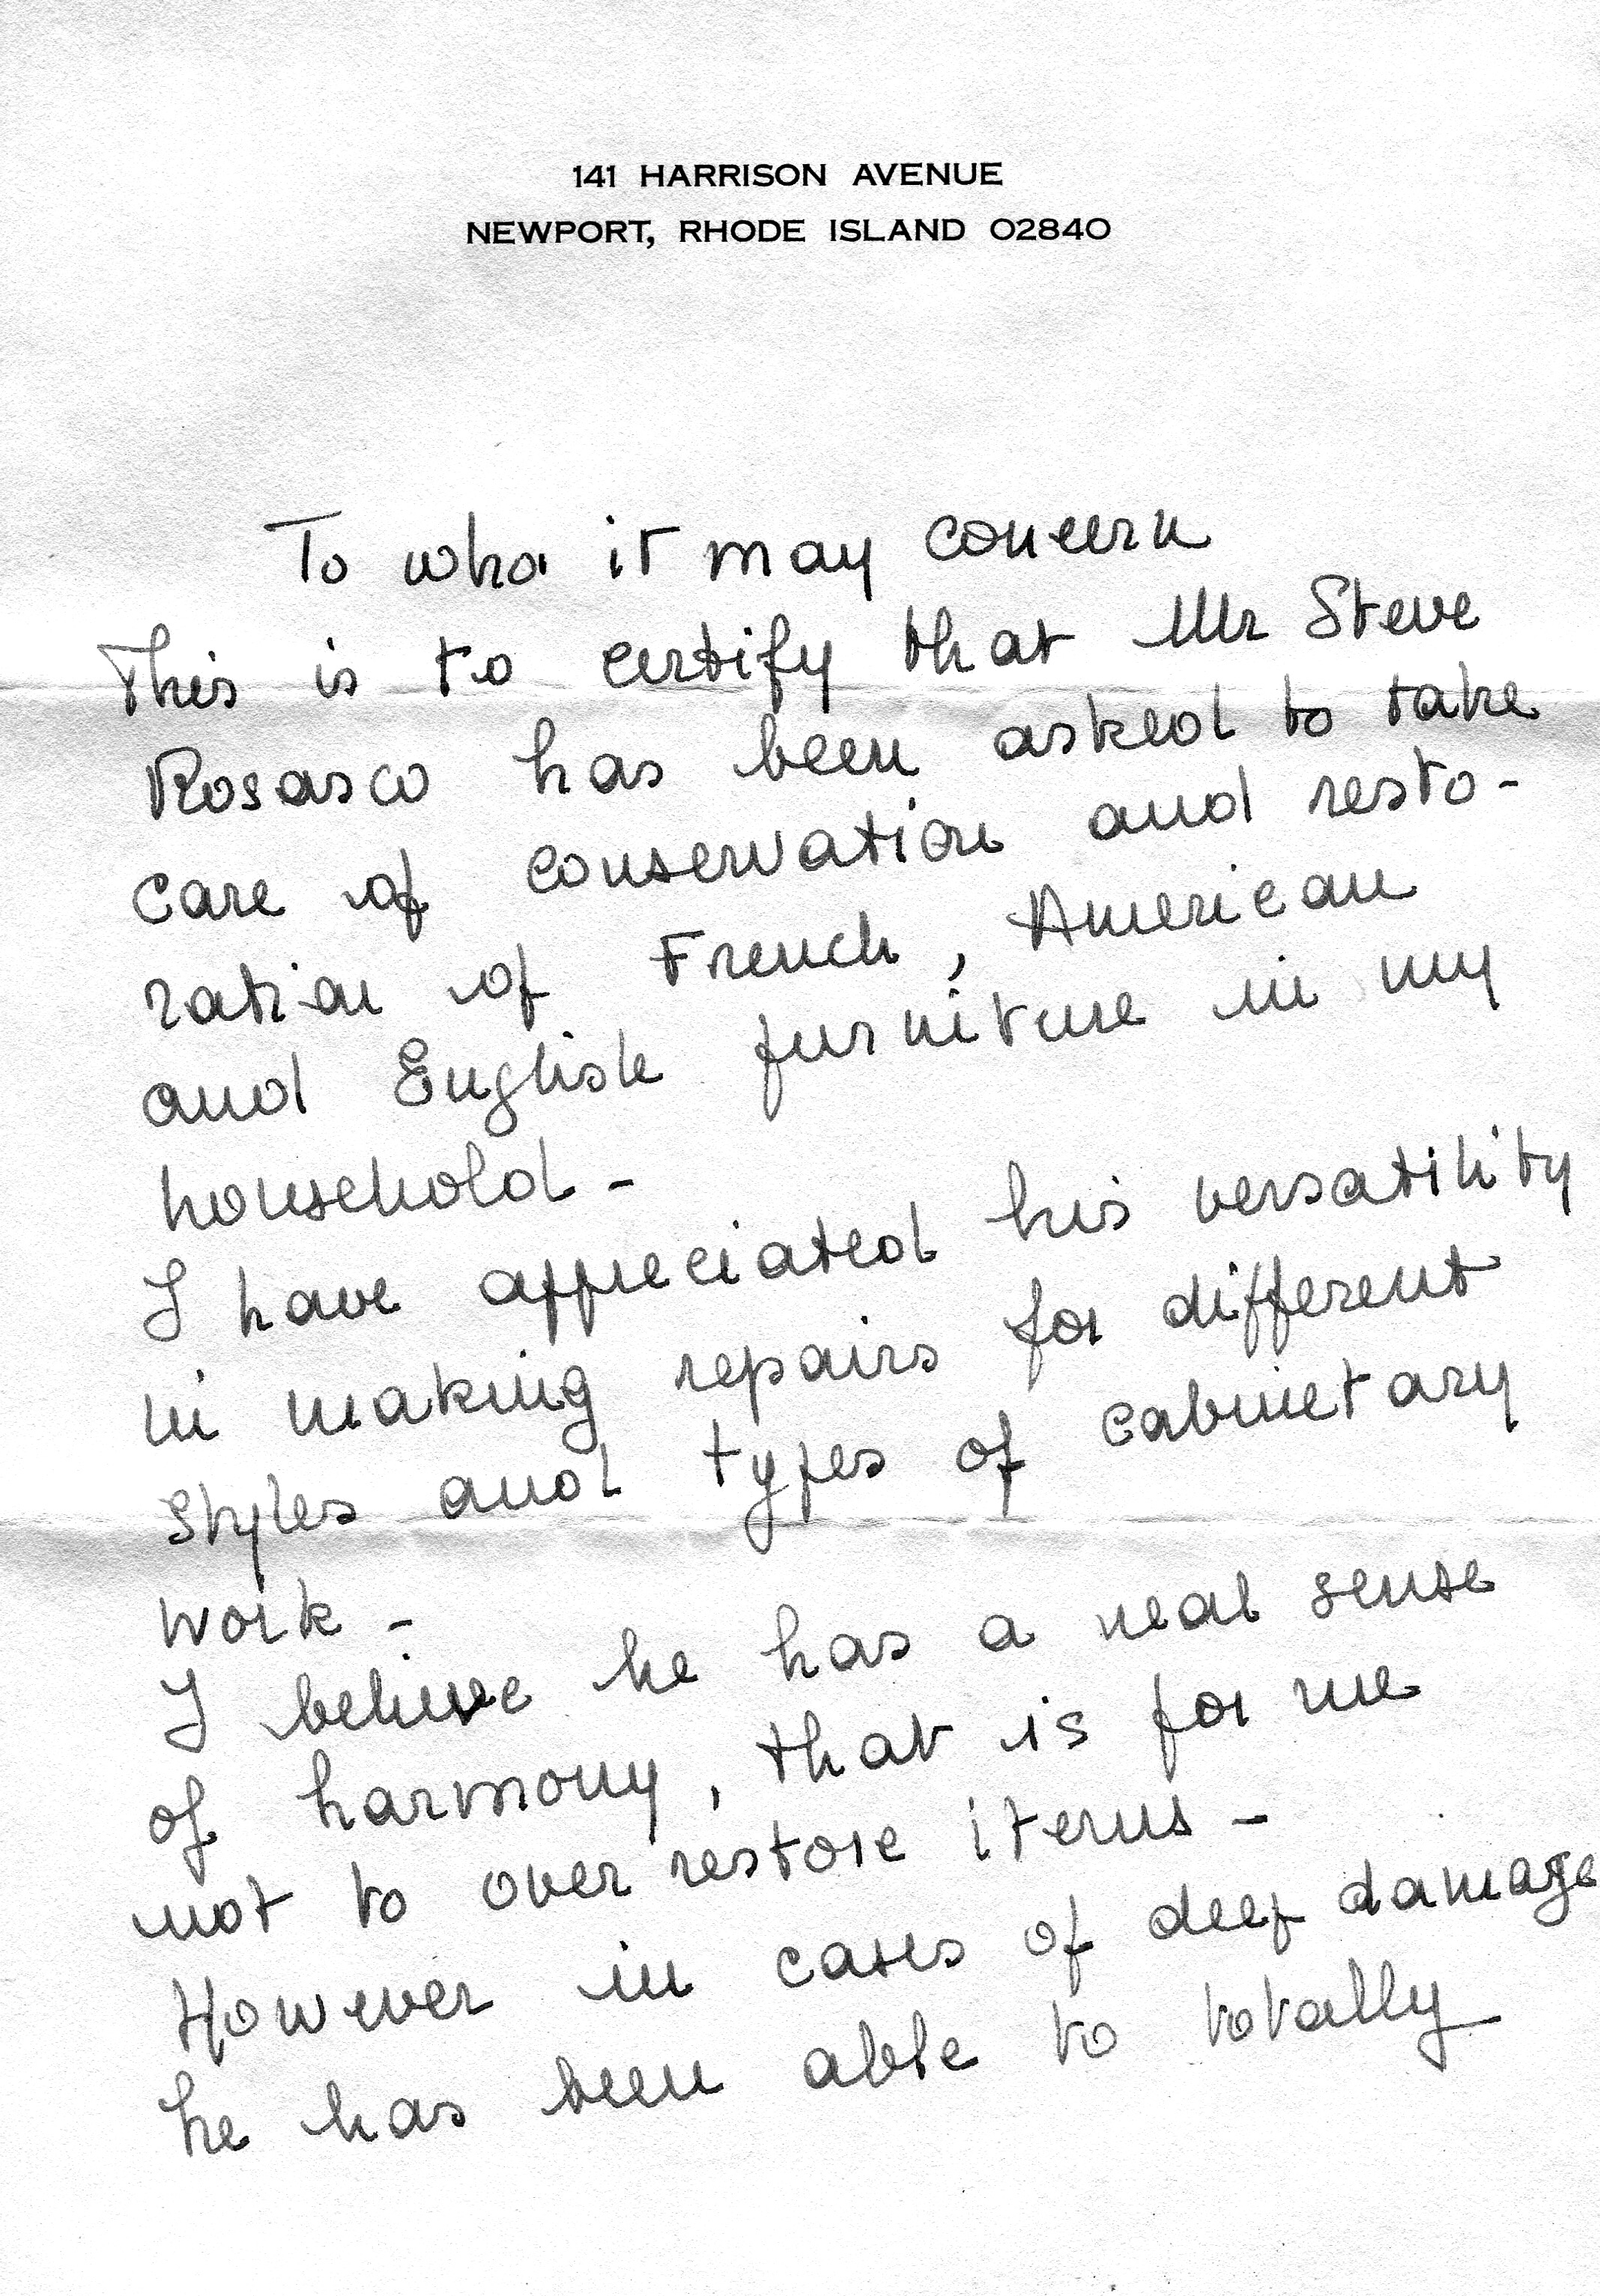 141 HARRISON AVENUE
NEWPORT, RHODE ISLAND 02840
To who it may concern
This is to certify that Mr Steve
Rosasco has been asked to take
care of conservation and resto-
ration of French, American
and English furniture in my
household -
I have appreciated his versatility
in making repairs for different
styles and types of cabinetary
work -
I believe he has a real sense
of harmony, that is for me
not to over restore items -
However in cases of deep damage
he has been able to totally